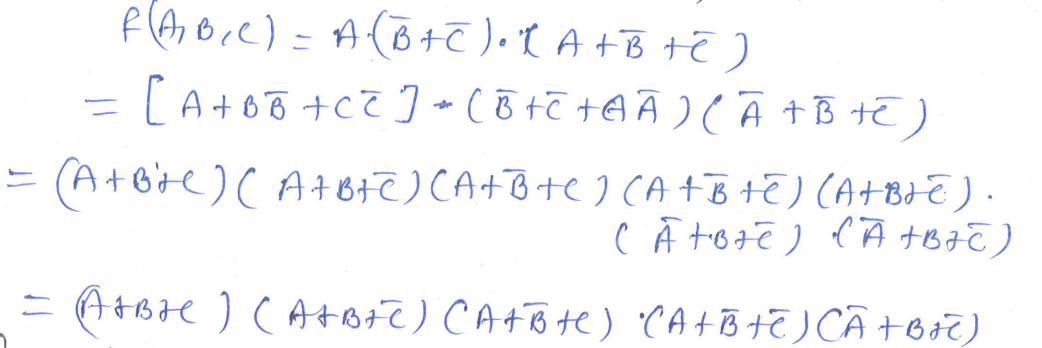 F(A, B, C) = A(B̅ + C̅).(A + B̅ + C̅)
= [A + BB̅ + CC̅] · (B̅ + C̅ + AA̅)(A̅ + B̅ + C̅)
= (A + B + C)(A + B + C̅)(A + B̅ + C)(A + B̅ + C̅)(A + B + C̅).
(A̅ + B + C̅)(A̅ + B + C̅)
= (A + B + C)(A + B + C̅)(A + B̅ + C)·(A + B̅ + C̅)(A̅ + B + C̅)